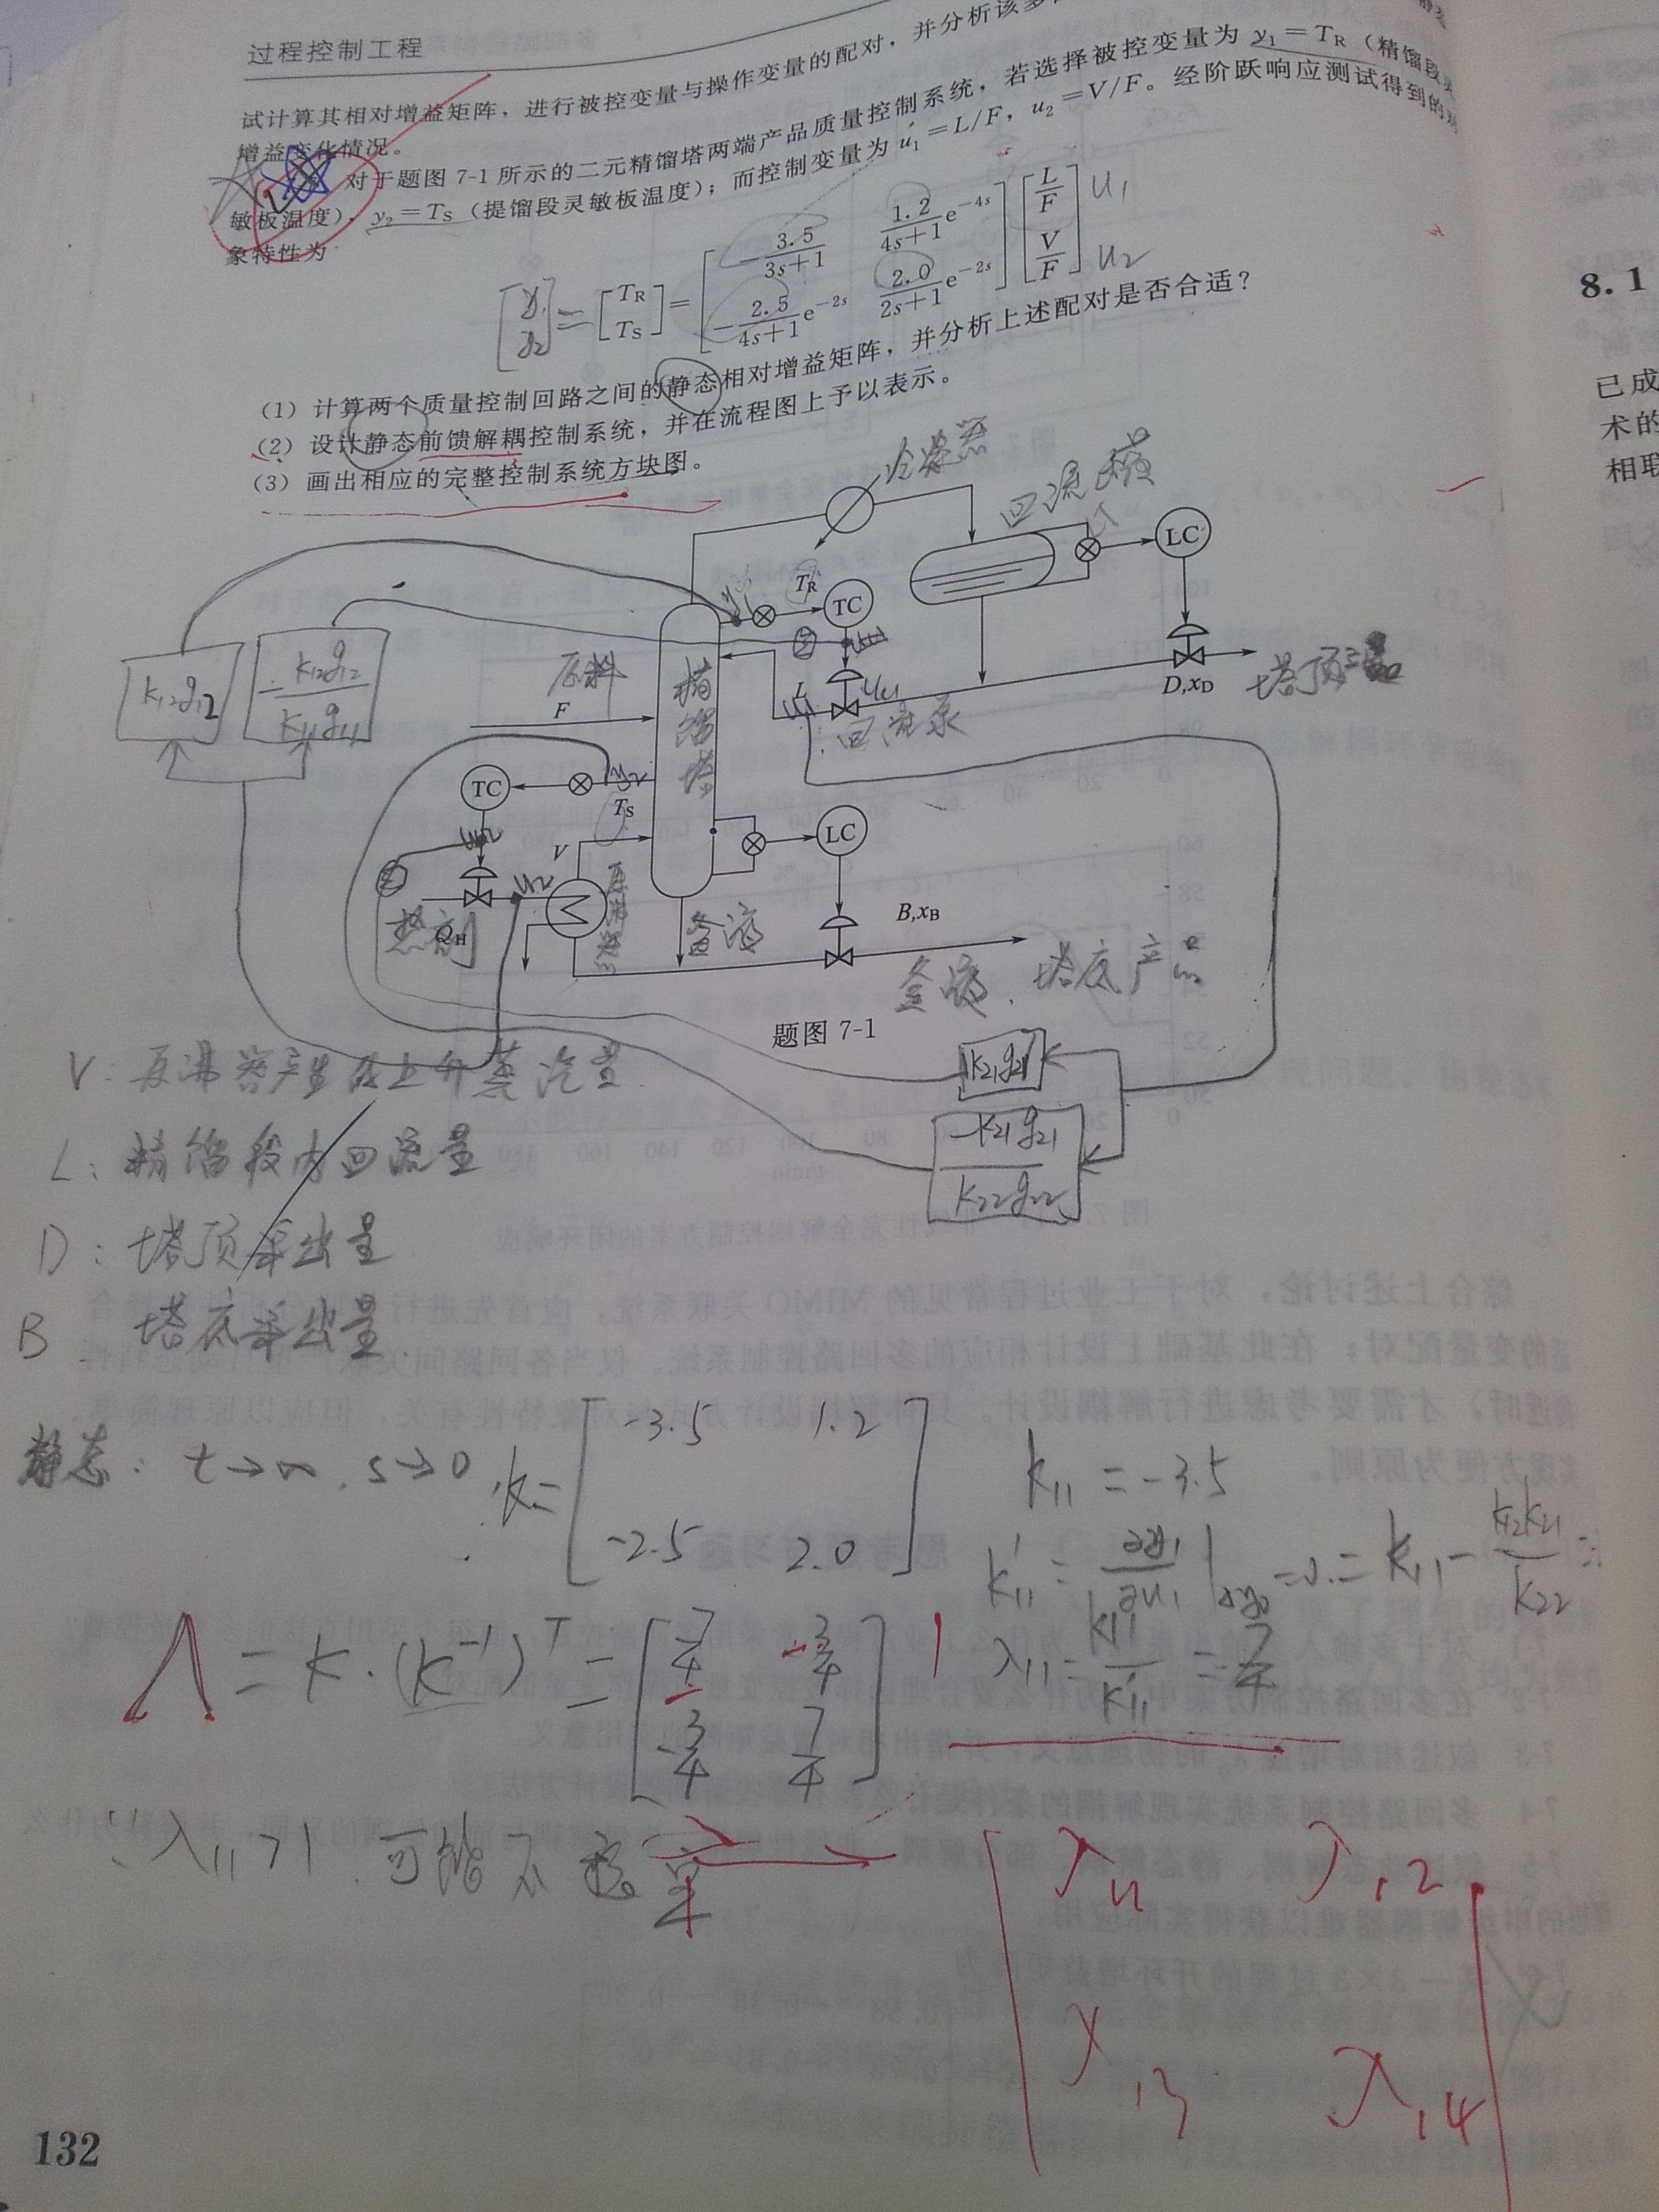 过程控制工程
试计算其相对增益矩阵，进行被控变量与操作变量的配对，并分析该多
增益变化情况。
对于题图 7-1 所示的二元精馏塔两端产品质量控制系统，若选择被控变量为 y₁=T_R（精馏段灵
敏板温度），y₂=T_S（提馏段灵敏板温度）；而控制变量为 u₁=L/F，u₂=V/F。经阶跃响应测试得到的对
象特性为
[y₁ y₂] = [T_R T_S] = [-3.5/(3s+1) 1.2/(4s+1) e^{-4s}; -2.5/(4s+1) e^{-2s} 2.0/(2s+1) e^{-2s}] [L/F V/F] U₁ U₂
（1）计算两个质量控制回路之间的静态相对增益矩阵，并分析上述配对是否合适？
（2）设计静态前馈解耦控制系统，并在流程图上予以表示。
（3）画出相应的完整控制系统方块图。
8.1
已成
术的
相联
冷凝器
回流罐
LT
LC
T_R
TC
y₁
k₁₂g₁₂
-k₁₂g₁₂/k₁₁g₁₁
原料
F
精馏塔
L
u₁
回流泵
D,x_D
塔顶产品
TC
y₂
T_S
V
LC
u₂
热剂
Q_H
再沸器
釜液
B,x_B
釜液、塔底产品
题图 7-1
k₂₁g₂₁
-k₂₁g₂₁/k₂₂g₂₂
V：再沸器产生的上升蒸汽量.
L：精馏段内回流量
D：塔顶采出量
B 塔底采出量
静态：t→∞，s→0
k=[-3.5 1.2; -2.5 2.0]
k₁₁=-3.5
k₁₁'=∂y₁/∂u₁|=k₁₁-k₁₂k₂₁/k₂₂=
Λ=k·(k⁻¹)ᵀ=[7/4 -3/4; -3/4 7/4]
λ₁₁=k₁₁/k₁₁'=7/4
∵λ₁₁>1 可能不稳定
[λ₁₁ λ₁₂
λ₁₃ λ₁₄]
132